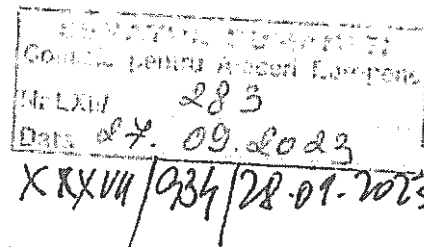 Comisia pentru Afaceri Europene
Nr LXII/ 283
Data 27. 09. 2023
XXXVII/934/28.09.2023